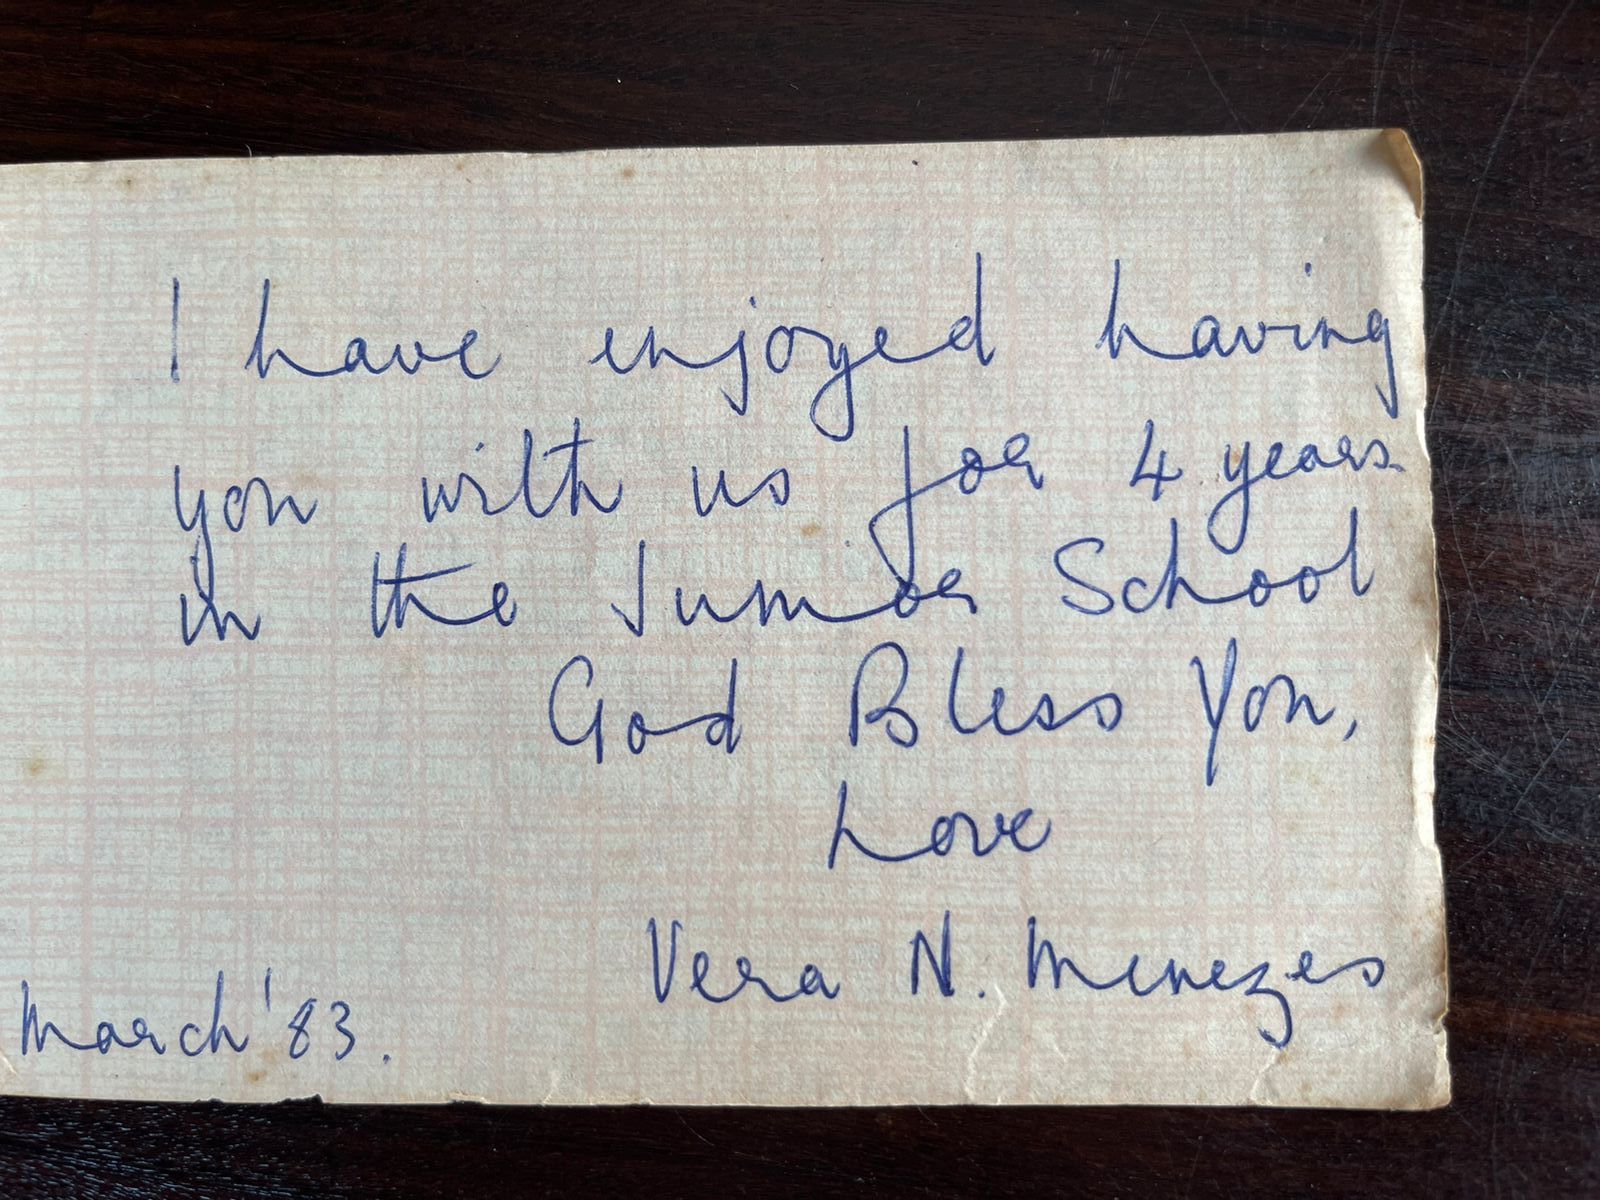 I have enjoyed having
you with us for 4 years
in the Junior School
God Bless You,
Love
Vera N. Menezes
March '83.